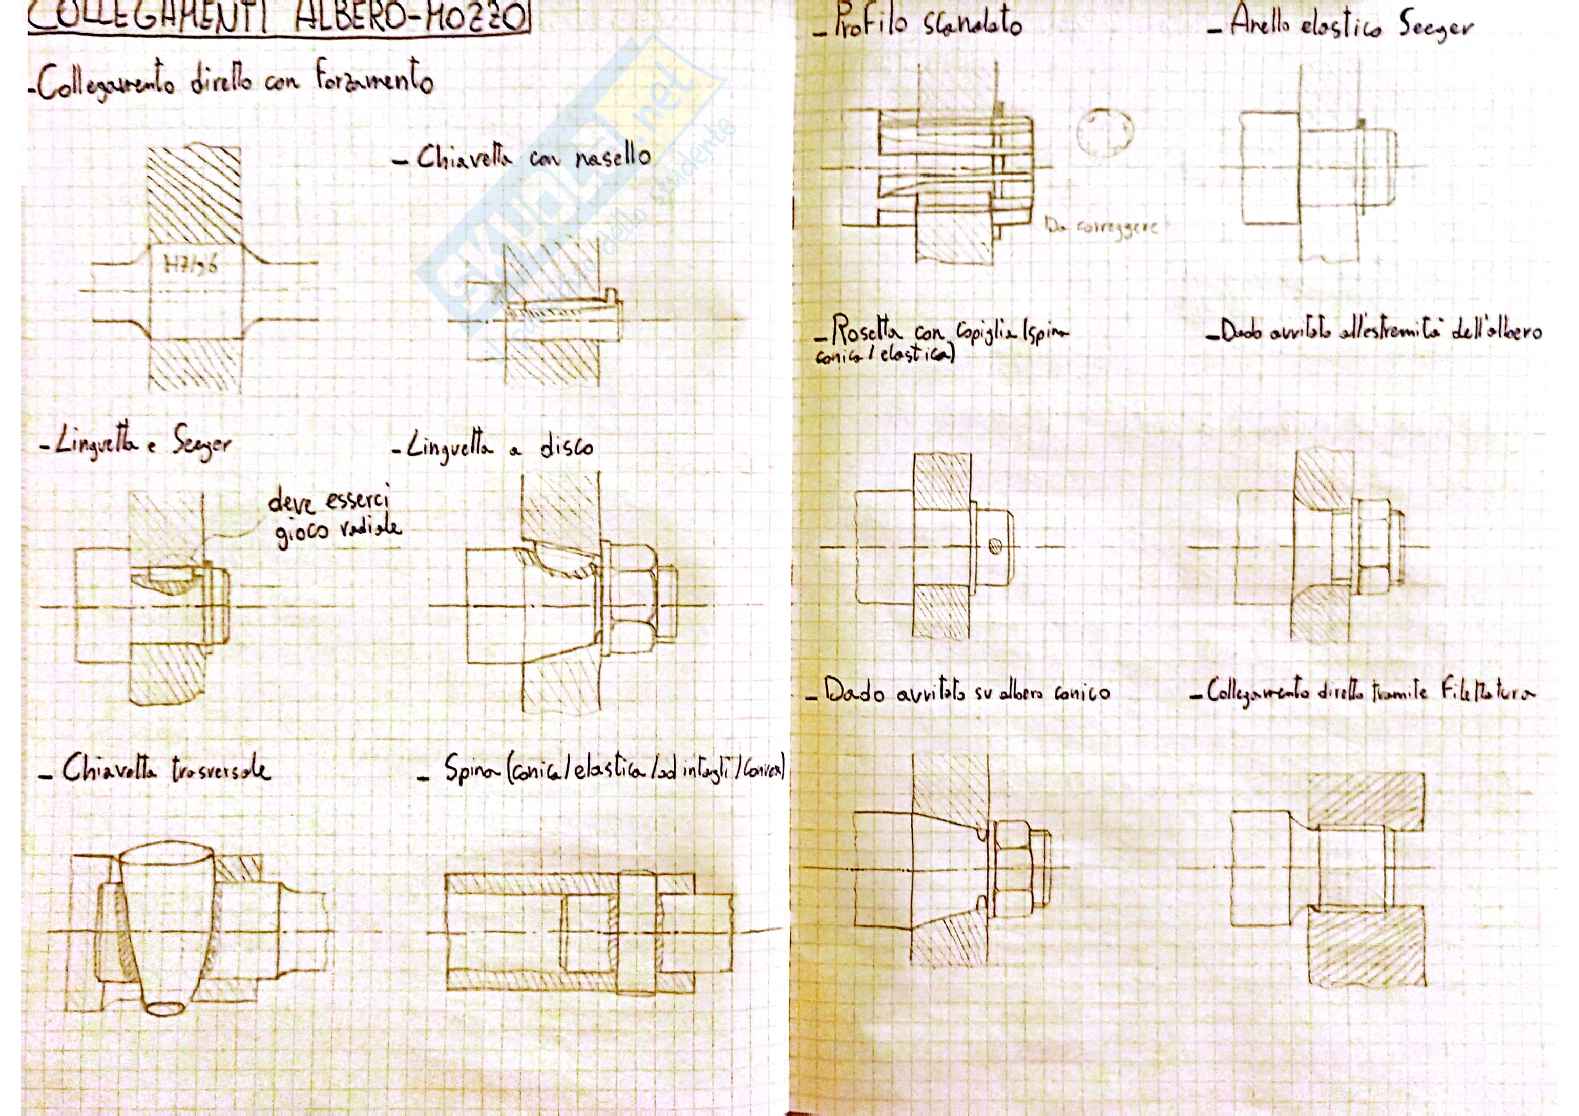 COLLEGAMENTI ALBERO-MOZZO
- Collegamento diretto con forzamento
- Chiavetta con nasello
H7/s6
- Linguetta e Seeger
deve esserci
gioco radiale
- Linguetta a disco
- Chiavetta trasversale
- Spina (conica/elastica/ad intagli/
- Profilo scanalato
Da correggere
- Anello elastico Seeger
- Rosetta con copiglia (spina
conica/elastica)
- Dado avvitato all'estremità dell'albero
- Dado avvitato su albero conico
- Collegamento diretto tramite filettatura
SKUOLA.net
dello studente